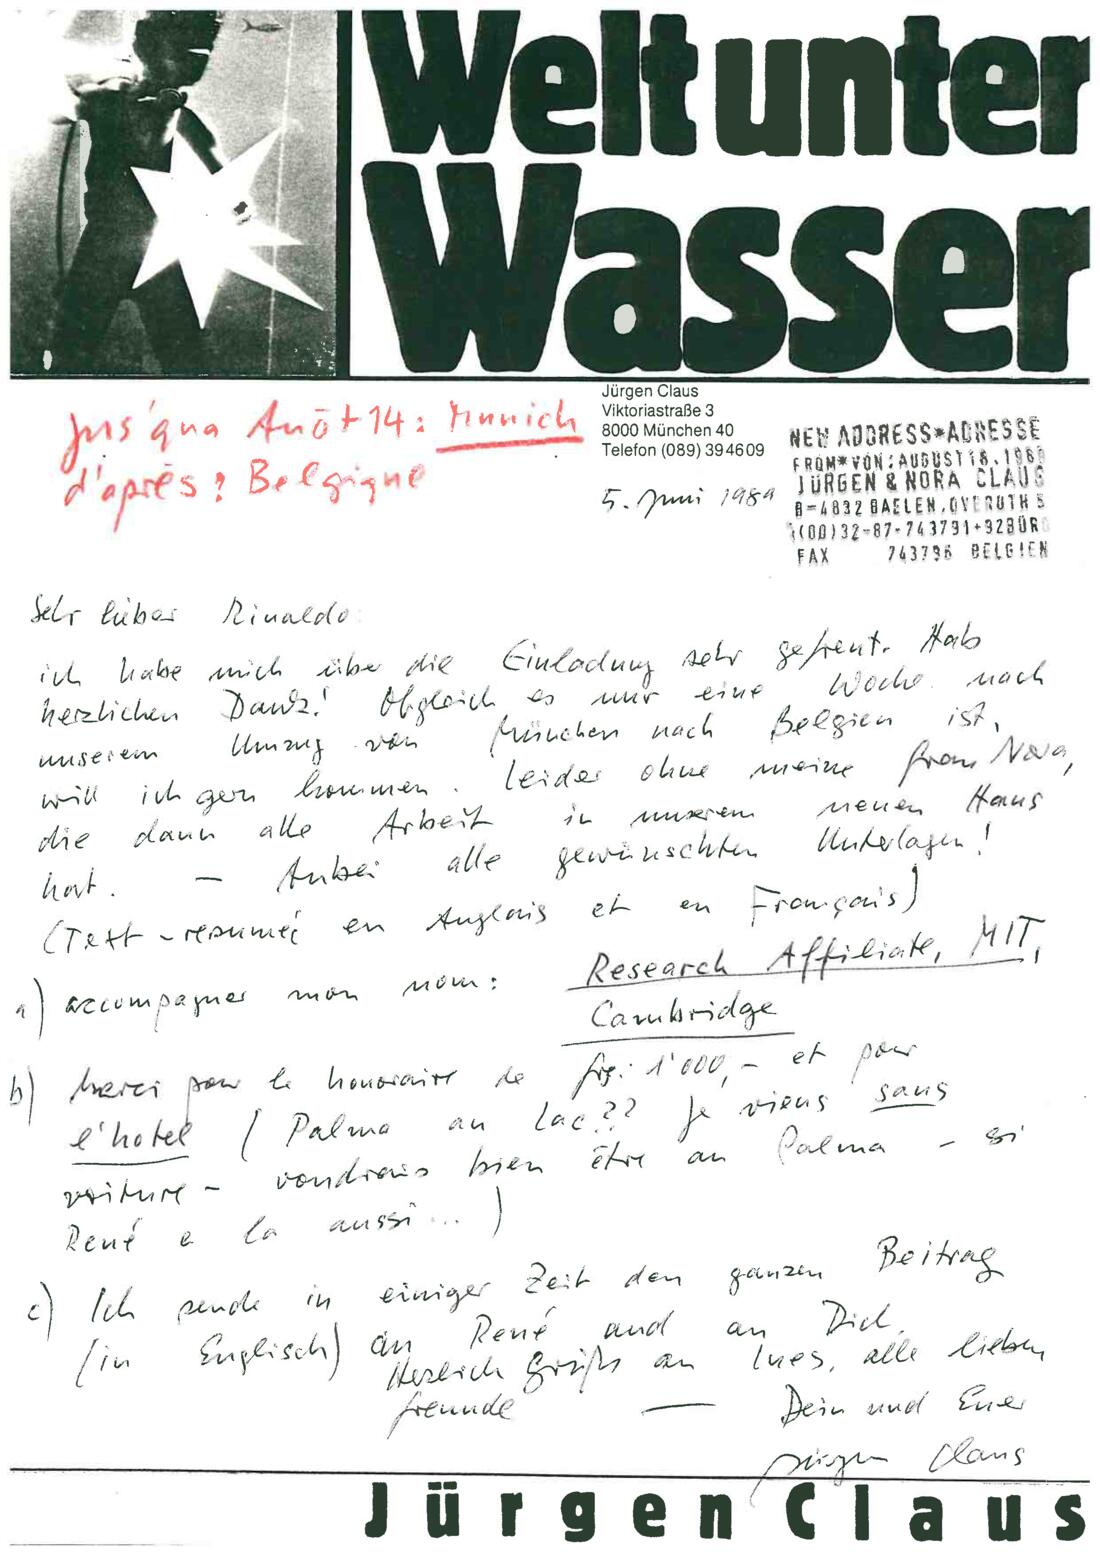 Welt unter
Wasser
Jürgen Claus
Viktoriastraße 3
8000 München 40
Telefon (089) 394609
Jus'qua Août 14: Munich
d'après: Belgique
NEW ADDRESS*ADRESSE
FROM*VON: AUGUST 18. 1989
JÜRGEN & NORA CLAUS
B=4832 BAELEN, OVEROTH 5
(00)32-87-743791+92BÜRO
FAX 743796 BELGIEN
5. Juni 1989
Sehr lieber Rinaldo:
ich habe mich über die Einladung sehr gefreut. Hab
herzlichen Dank! Obgleich es nur eine Woche nach
unserem Umzug von München nach Belgien ist,
will ich gern kommen. Leider ohne meine Frau Nora,
die dann alle Arbeit in unserem neuen Haus
hat. — Anbei alle gewünschten Unterlagen!
(Text-resumée en Anglais et en Français)
a) accompagner mon nom: Research Affiliate, MIT,
Cambridge
b) Merci pour le honoraire de frs: 1'000,- et pour
l'hotel (Palma au Lac?? Je viens sans
voiture - voudrais bien être au Palma - si
René e la aussi...)
c) Ich sende in einiger Zeit den ganzen Beitrag
(in Englisch) an René und an Dich.
Herzlich Grüße an Ines, alle lieben
Freunde — Dein und Euer
Jürgen Claus
Jürgen Claus